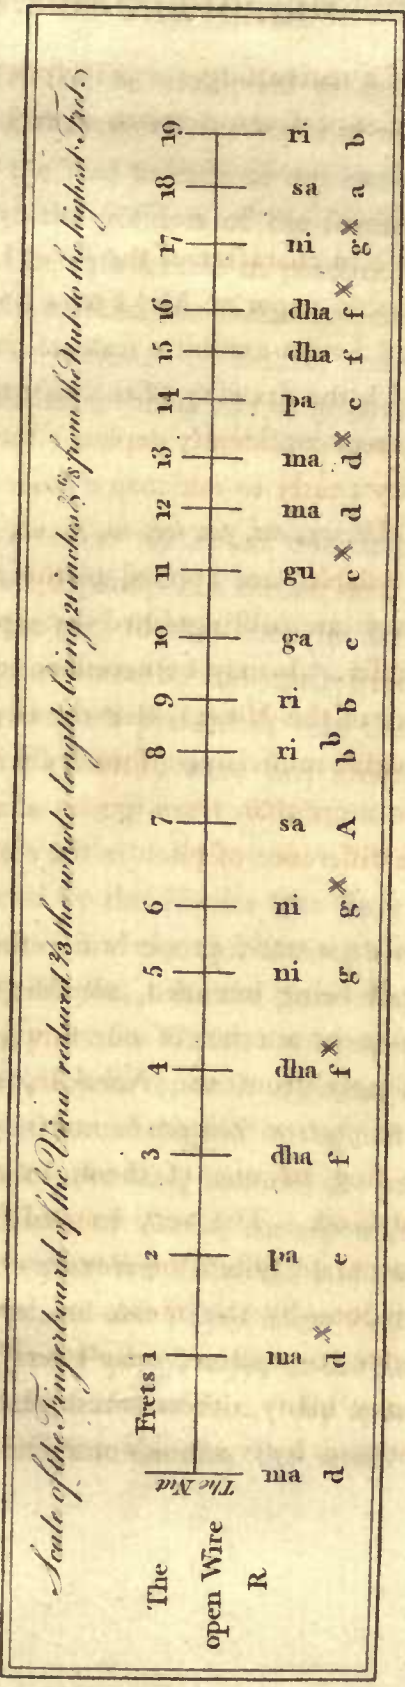 Scale of the Fingerboard of the Vina reduced ⅔ the whole length being 21 inches ⅝ from the Nut to the highest Fret.
The Frets 1 2 3 4 5 6 7 8 9 10 11 12 13 14 15 16 17 18 19
The Nut
open Wire
R ma ma pa dha dha ni ni sa ri ri ga gu ma ma pa dha dha ni sa ri
d d× e f f× g g× A b♭ b c c× d d× c f f× g× a b